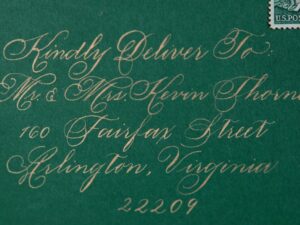 U.S. POS
Kindly Deliver To:
Mr. & Mrs Kevin Thorne
160 Fairfax Street
Arlington, Virginia
22209